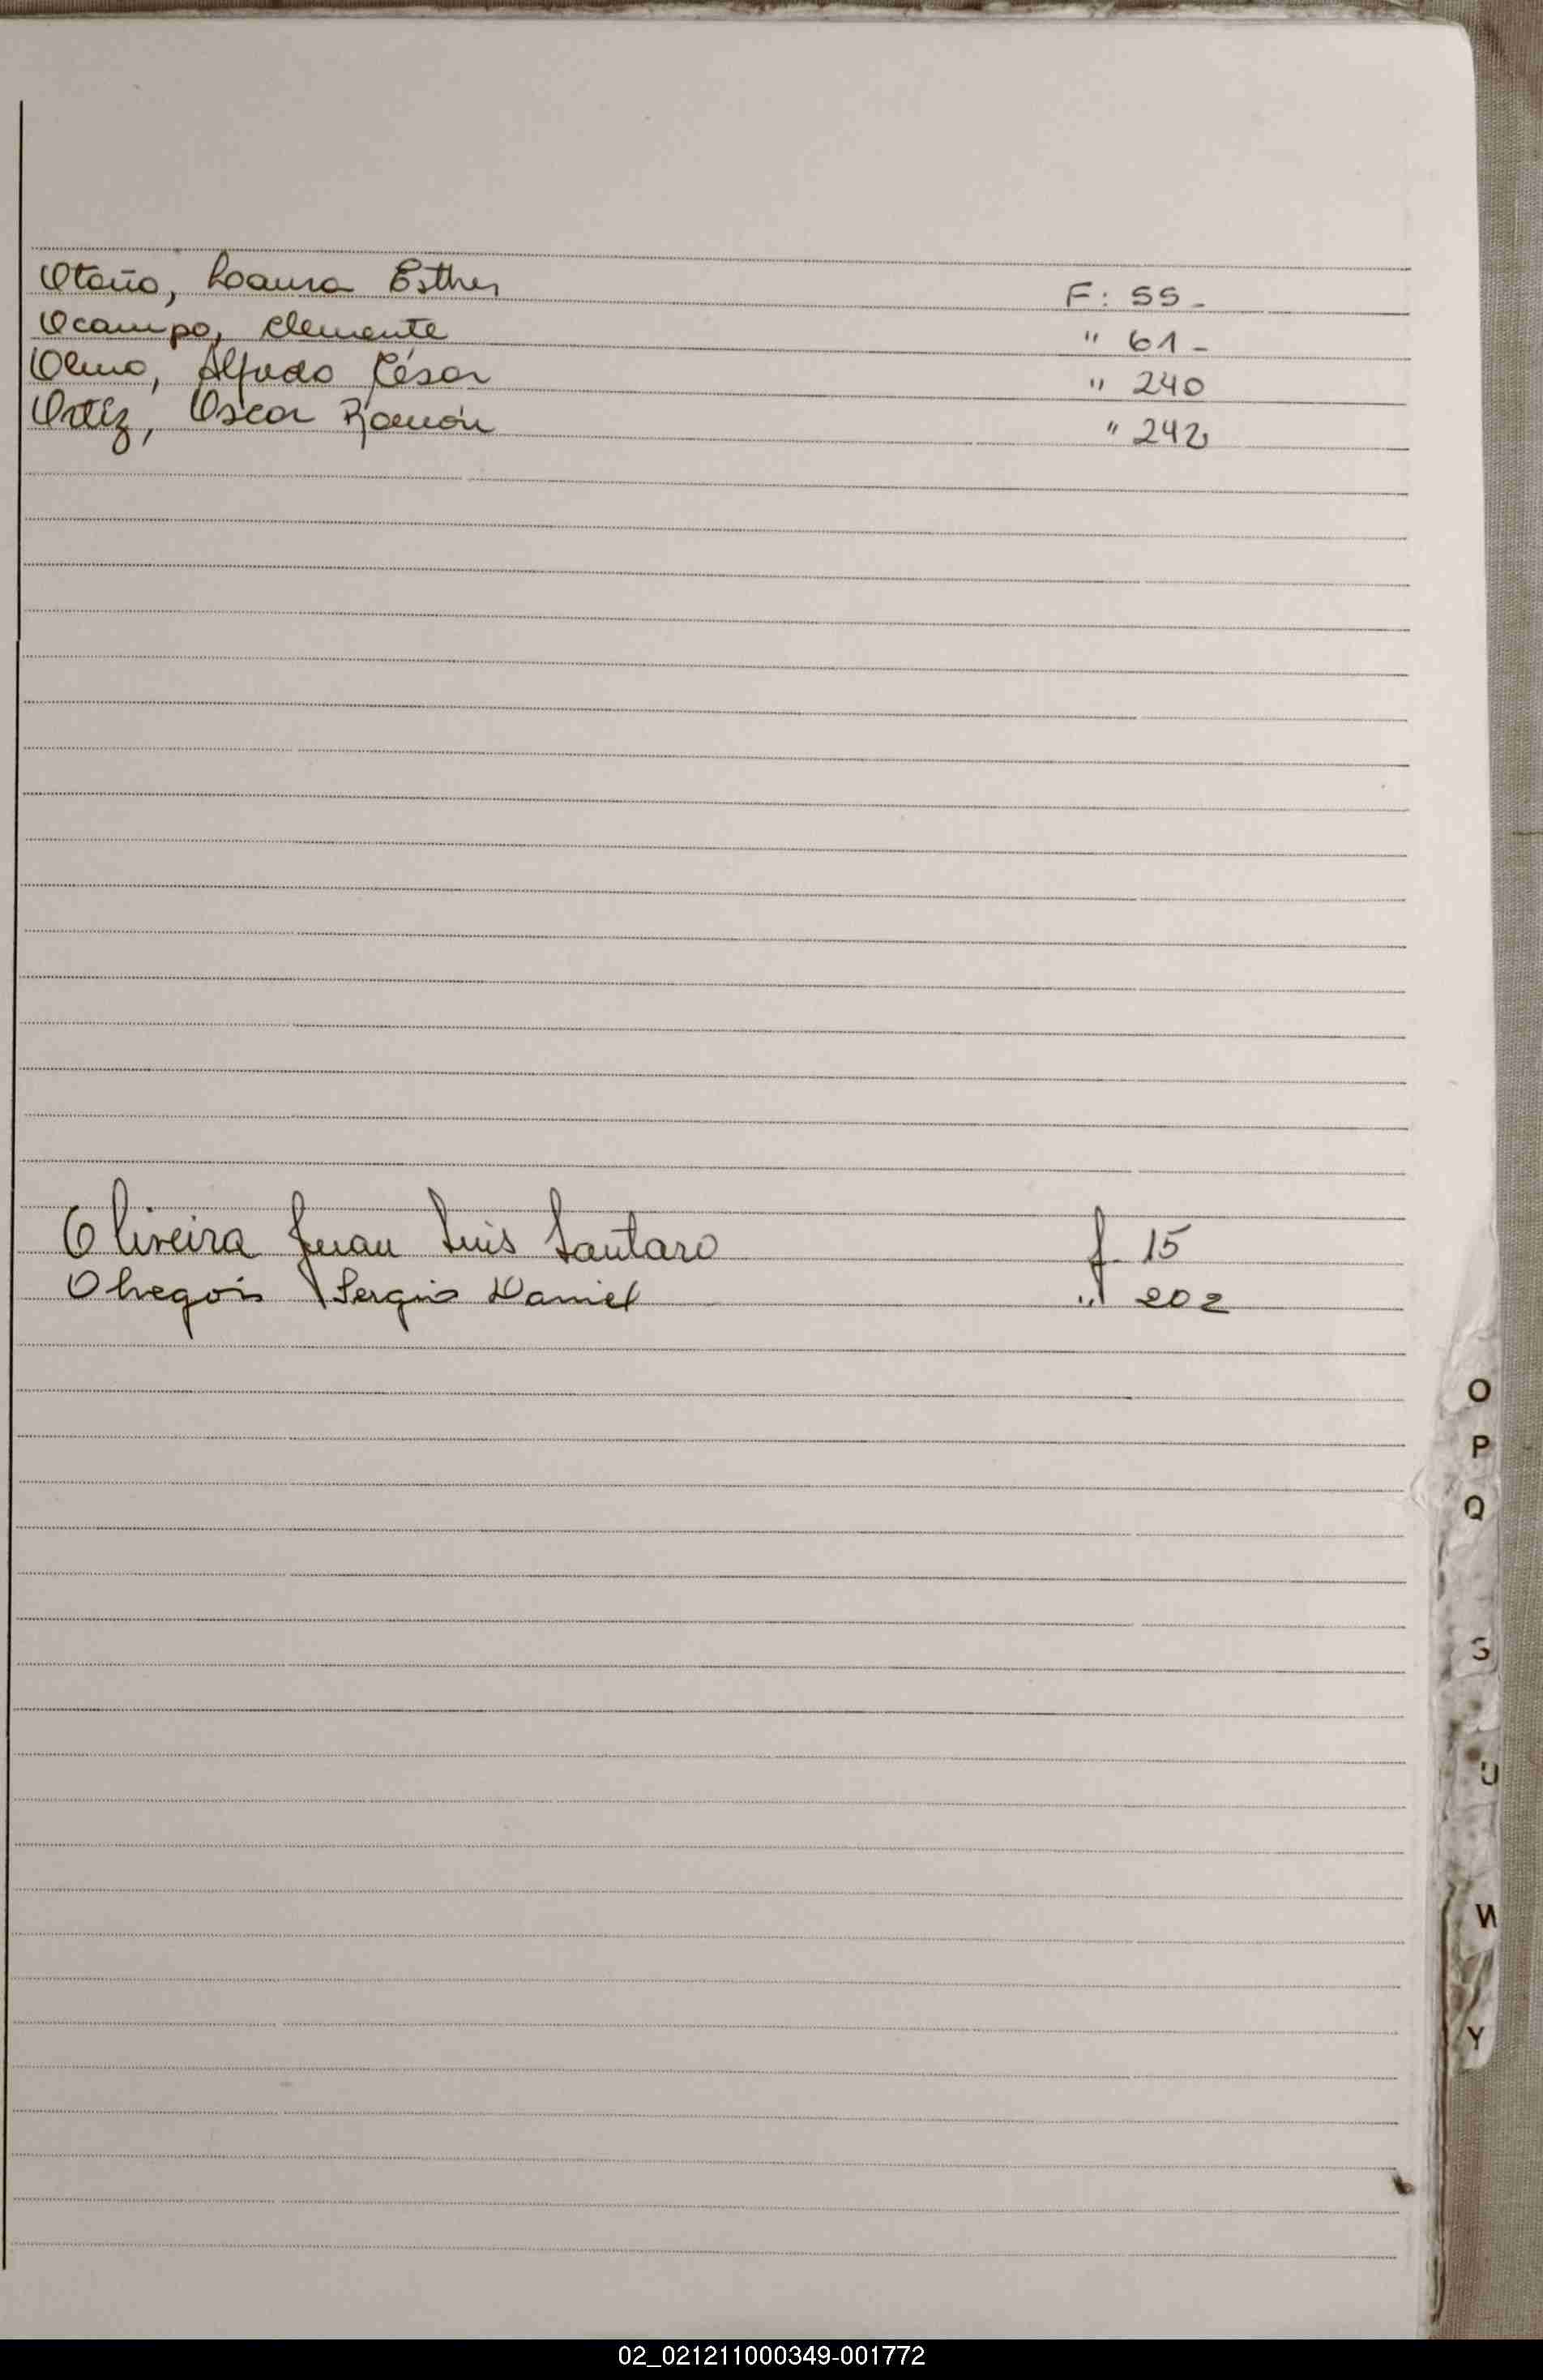 Otaño, Laura Esther F: 55-
Ocampo, Clemente " 61-
Olmo, Alfredo César " 240
Ortíz, Oscar Ramón " 242
Oliveira Juan Luis Lautaro f 15
Obregón Sergio Daniel " 202
O
P
Q
S
U
W
Y
02_021211000349-001772